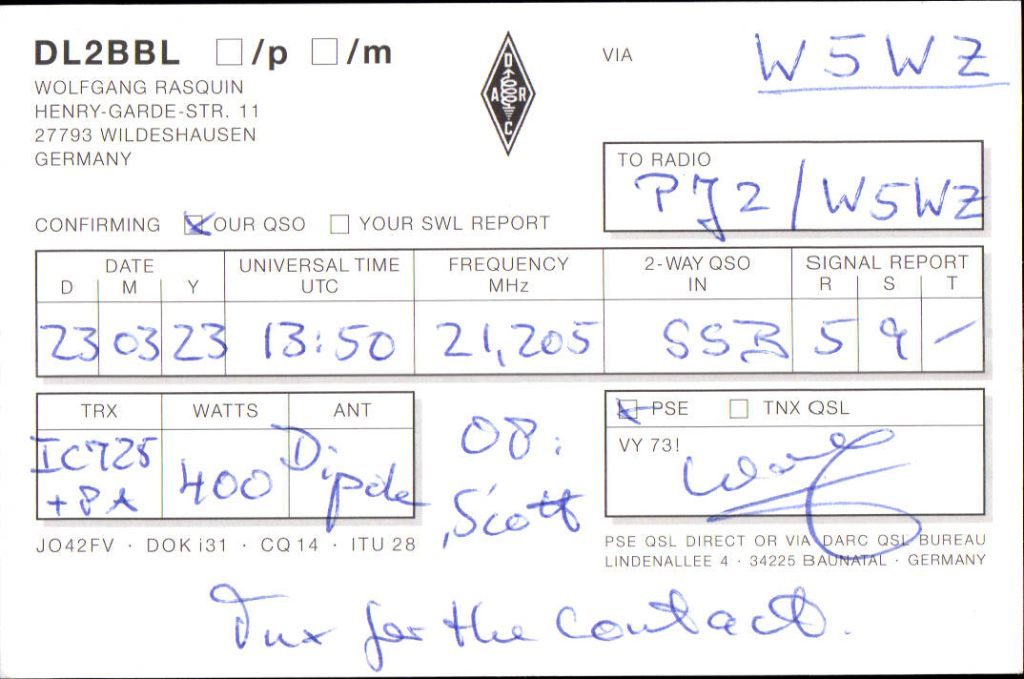 DL2BBL □/p □/m
WOLFGANG RASQUIN
HENRY-GARDE-STR. 11
27793 WILDESHAUSEN
GERMANY
DARC
VIA W5WZ
TO RADIO
PJ2/W5WZ
CONFIRMING ☒ OUR QSO □ YOUR SWL REPORT
DATE UNIVERSAL TIME FREQUENCY 2-WAY QSO SIGNAL REPORT
D M Y UTC MHz IN R S T
23 03 23 13:50 21,205 SSB 5 9 –
TRX WATTS ANT
IC725 400 Dipole
+ PA
OP:
Scott
☒ PSE □ TNX QSL
VY 73!
JO42FV · DOK i31 · CQ 14 · ITU 28
PSE QSL DIRECT OR VIA DARC QSL BUREAU
LINDENALLEE 4 · 34225 BAUNATAL · GERMANY
Tnx for the contact.